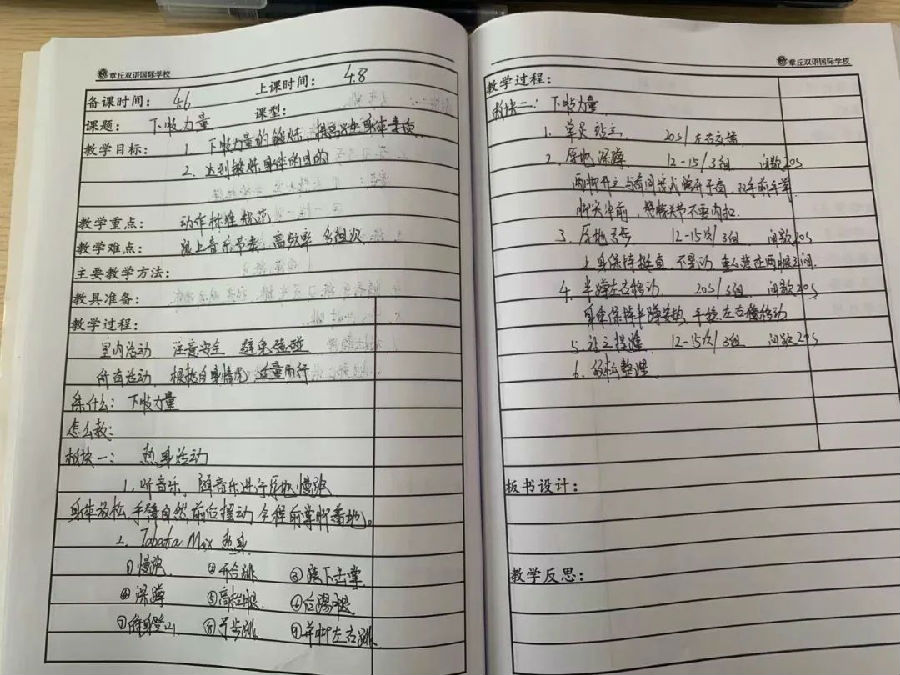 章丘双语国际学校
备课时间： 4.6 上课时间： 4.8
课题： 下肢力量 课型：
教学目标： 1. 下肢力量的锻炼，提高身体素质
2. 达到锻炼身体的目的
教学重点： 动作标准规范
教学难点： 跟上音乐节奏 高频率 多组次
主要教学方法：
教具准备：
教学过程：
室内活动 注意安全 避免碰撞
所有活动，根据自身情况 适量而行
练什么：下肢力量
怎么教：
板块一： 热身活动
1. 听音乐，随音乐进行原地慢跑
身体放松 手臂自然前后摆动 全程前掌脚着地。
2. Tabata Mix 热身
①慢跑 ②开合跳 ③胯下击掌
④深蹲 ⑤高抬腿 ⑥后踢腿
⑦俯身登山 ⑧弓步跳 ⑨并脚左右跳
章丘双语国际学校
教学过程：
板块二：下肢力量
1. 单足站立 20s/左右交替
2. 原地深蹲 12-15/3组 间歇20s
两脚开立与肩同宽或略宽于肩，双手前平举
脚尖华前，膝关节不要内扣.
3. 原地弓步 12-15次/3组 间歇20s
上身保持挺直 不晃动 重心落在两腿之间.
4. 半蹲左右移动 20s/3组 间歇20s
身体保持半蹲姿势，手接左右移动
5. 站立提踵 12-15次/3组 间歇20s
6. 放松整理
板书设计：
教学反思：